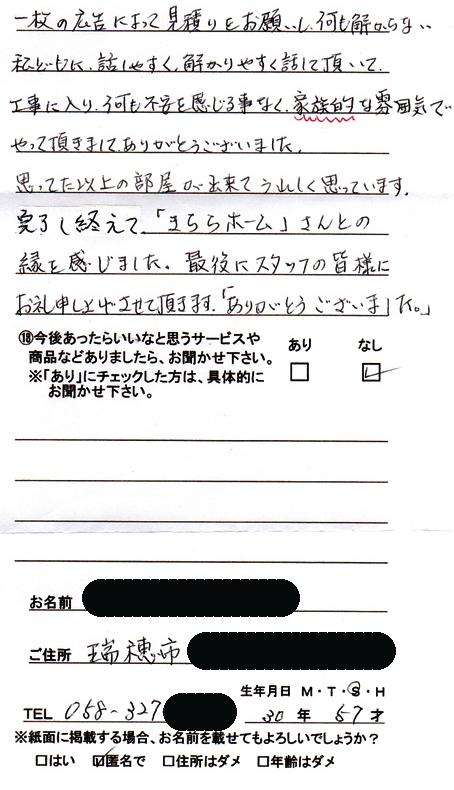 一枚の広告によって見積りをお願いし、何も解からない
私どもに、話しやすく、解かりやすく話して頂いて、
工事に入り、何も不安を感じる事なく、家族的な雰囲気で
やって頂きまして、ありがとうございました。
思ってた以上の部屋が出来てうれしく思っています。
完了し終えて、「きららホーム」さんとの
縁を感じました。最後にスタッフの皆様に
お礼申し上げさせて頂きます。「ありがとうございました。」
⑱今後あったらいいなと思うサービスや
商品などありましたら、お聞かせ下さい。
※「あり」にチェックした方は、具体的に
お聞かせ下さい。
あり なし
お名前
ご住所 瑞穂市
生年月日 M・T・S・H
TEL 058-327 30年 57才
※紙面に掲載する場合、お名前を載せてもよろしいでしょうか？
□はい ☑匿名で □住所はダメ □年齢はダメ